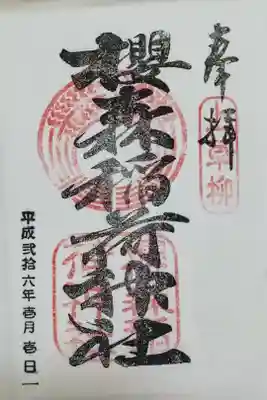 奉拝
草柳
櫻森稲荷神社
平成弐拾六年壱月壱日